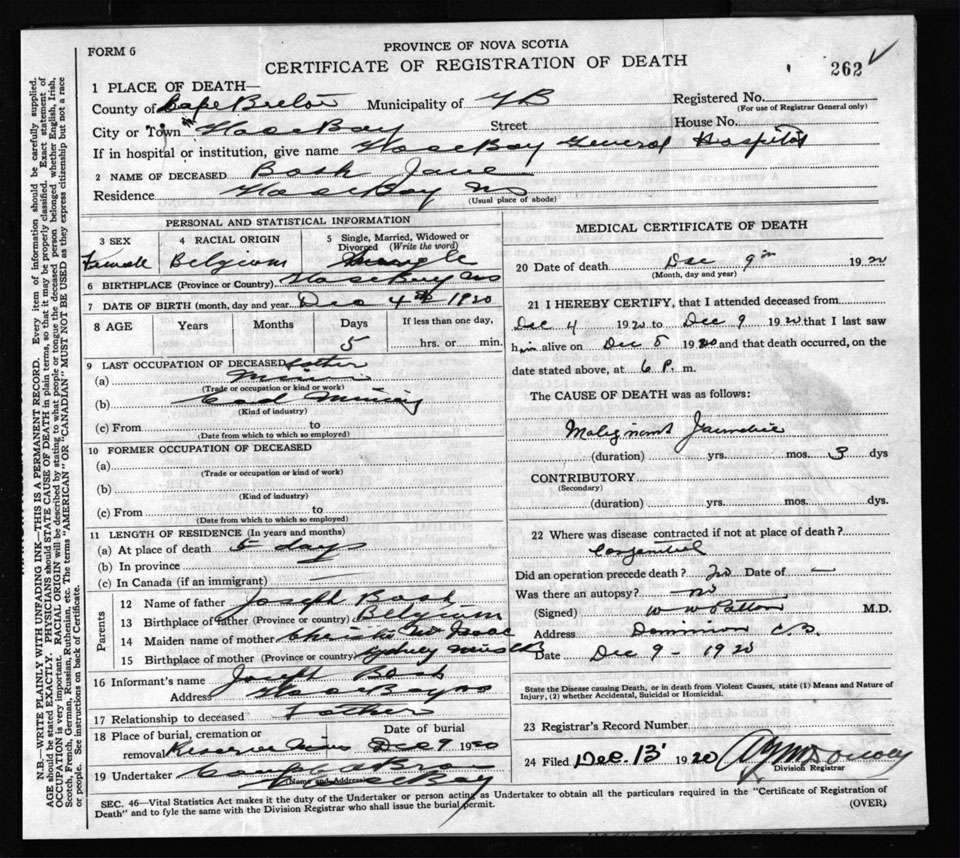 FORM 6
PROVINCE OF NOVA SCOTIA
CERTIFICATE OF REGISTRATION OF DEATH
262
1 PLACE OF DEATH—
County of Cape Breton Municipality of Registered No.
(For use of Registrar General only)
City or Town Street House No.
If in hospital or institution, give name General Hospital
2 NAME OF DECEASED Bosh Jane
Residence
(Usual place of abode)
PERSONAL AND STATISTICAL INFORMATION
3 SEX
4 RACIAL ORIGIN
5 Single, Married, Widowed or Divorced (Write the word)
Female Belgium Single
6 BIRTHPLACE (Province or Country)
7 DATE OF BIRTH (month, day and year) Dec 4th 1920
8 AGE Years Months Days If less than one day,
5 hrs. or min.
9 LAST OCCUPATION OF DECEASED father
(a)
(Trade or occupation or kind or work)
(b) Coal Mining
(Kind of industry)
(c) From to
(Date from which to which so employed)
10 FORMER OCCUPATION OF DECEASED
(a)
(Trade or occupation or kind of work)
(b)
(Kind of industry)
(c) From to
(Date from which to which so employed)
11 LENGTH OF RESIDENCE (In years and months)
(a) At place of death 5 days
(b) In province
(c) In Canada (if an immigrant) —
Parents
12 Name of father Joseph Bosh
13 Birthplace of father (Province or country) Belgium
14 Maiden name of mother
15 Birthplace of mother (Province or country) Sydney Mines CB
16 Informant's name Joseph Bosh
Address
17 Relationship to deceased Father
18 Place of burial, cremation or removal Date of burial
Reserve Mines Dec 9 1920
19 Undertaker
(Name and Address)
MEDICAL CERTIFICATE OF DEATH
20 Date of death Dec 9th 1920
(Month, day and year)
21 I HEREBY CERTIFY, that I attended deceased from
Dec 4 1920 to Dec 9 1920 that I last saw
him alive on Dec 8 1920 and that death occurred, on the
date stated above, at 6 P. m.
The CAUSE OF DEATH was as follows:
Malignant Jaundice
(duration) yrs. mos. 3 dys
CONTRIBUTORY
(Secondary)
(duration) yrs. mos. dys.
22 Where was disease contracted if not at place of death?
Congenital
Did an operation precede death? No Date of —
Was there an autopsy? no
(Signed) W W Patton M.D.
Address Dominion C.B.
Date Dec 9 - 1920
State the Disease causing Death, or in death from Violent Causes, state (1) Means and Nature of
Injury, (2) whether Accidental, Suicidal or Homicidal.
23 Registrar's Record Number
24 Filed Dec. 13 1920
Division Registrar
SEC. 46—Vital Statistics Act makes it the duty of the Undertaker or person acting as Undertaker to obtain all the particulars required in the "Certificate of Registration of
Death" and to fyle the same with the Division Registrar who shall issue the burial permit.
(OVER)
N.B.—WRITE PLAINLY WITH UNFADING INK—THIS IS A PERMANENT RECORD. Every item of information should be carefully supplied.
AGE should be stated EXACTLY. PHYSICIANS should STATE CAUSE OF DEATH in plain terms, so that it may be properly classified. Exact statement of
OCCUPATION is very important. RACIAL ORIGIN will be described by stating to what people or tongue the deceased person belonged whether English, Irish,
Scotch, French, German, Russian, Ruthenian, etc. The terms "AMERICAN" OR "CANADIAN" MUST NOT BE USED as they express citizenship but not a race
or people. See instructions on back of Certificate.